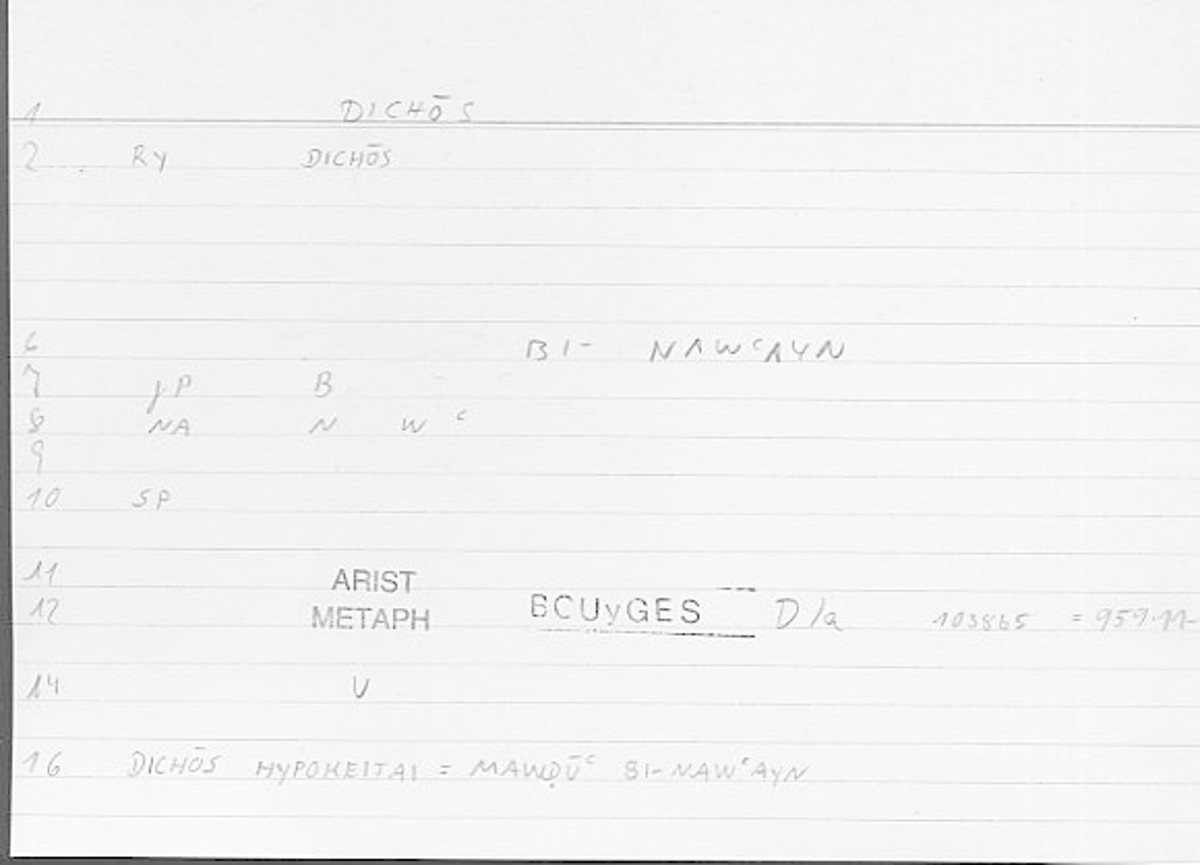 1 DICHŌS
2 RY DICHŌS
6 BI- NAWᶜAYN
7 jP B
8 NA N W ᶜ
9
10 SP
11 ARIST
12 METAPH BOUyGES D/a 1038b5 = 959.11-
14 V
16 DICHŌS HYPOKEITAI = MAWḌŪᶜ BI-NAWᶜAYN